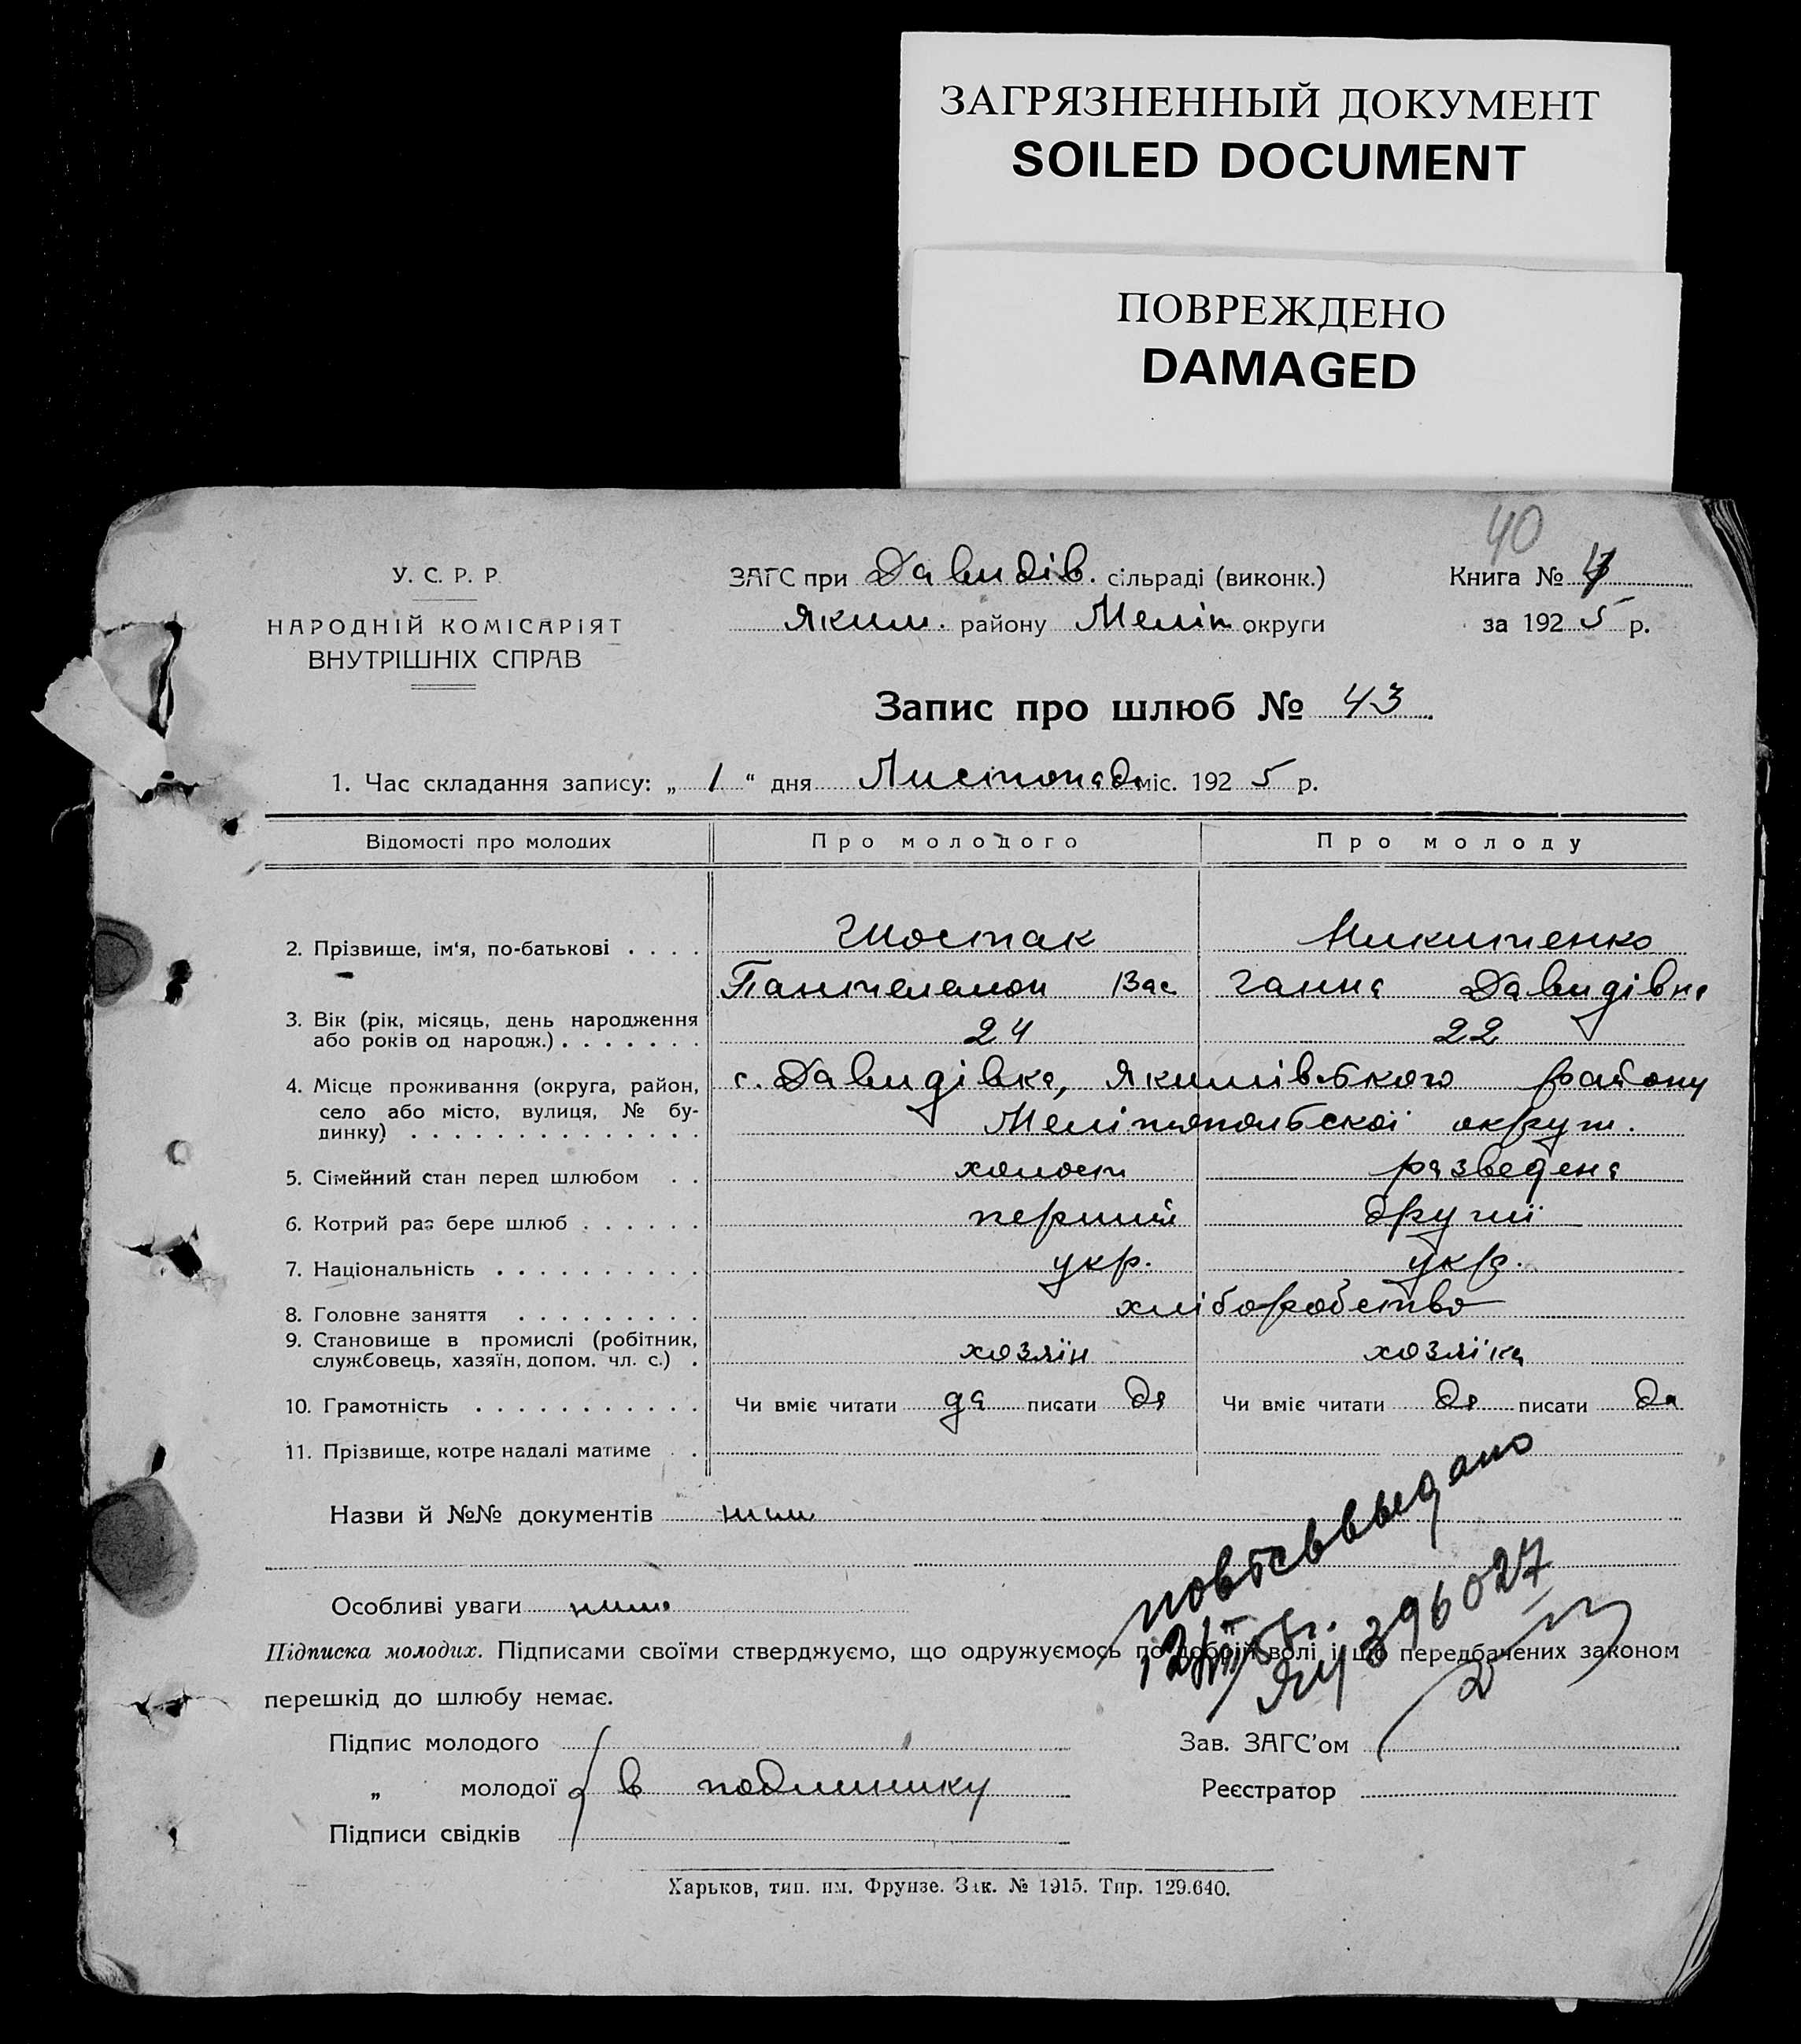 ЗАГРЯЗНЕННЫЙ ДОКУМЕНТ
SOILED DOCUMENT
ПОВРЕЖДЕНО
DAMAGED
40
У. С. Р. Р.
НАРОДНІЙ КОМІСАРІЯТ
ВНУТРІШНІХ СПРАВ
ЗАГС при Давидів. сільраді (виконк.)
Яким. району Меліт округи
Книга №
за 1925 р.
Запис про шлюб № 43
1. Час складання запису: „ 1 “ дня Листопада міс. 1925 р.
Відомості про молодих Про молодого Про молоду
2. Прізвище, ім‘я, по-батькові . . . . Шостак Микитенко
Пантелемон Вас Ганна Давидівна
3. Вік (рік, місяць, день народження або років од народж.) . . . . . . . 24 22
4. Місце проживання (округа, район, село або місто, вулиця, № будинку) . . . . . . . . . . . . . . с. Давидівка, Якимівського району
Мелітопольської округи.
5. Сімейний стан перед шлюбом . . холост разведена
6. Котрий раз бере шлюб . . . . . . перший другиї
7. Національність . . . . . . . . . . укр. укр.
8. Головне заняття . . . . . . . . . хліборобство
9. Становище в промислі (робітник, службовець, хазяїн, допом. чл. с.) . хозяїн хозяїка
10. Грамотність . . . . . . . . . . . Чи вміє читати да писати да Чи вміє читати да писати да
11. Прізвище, котре надалі матиме .
Назви й №№ документів
Особливі уваги
выдано
396027
Підписка молодих. Підписами своїми стверджуємо, що одружуємось по добрій волі і що передбачених законом
перешкід до шлюбу немає.
Підпис молодого
„ молодої в подлинику
Підписи свідків
Зав. ЗАГС’ом
Реєстратор
Харьков, тип. им. Фрунзе. Зак. № 1915. Тир. 129.640.